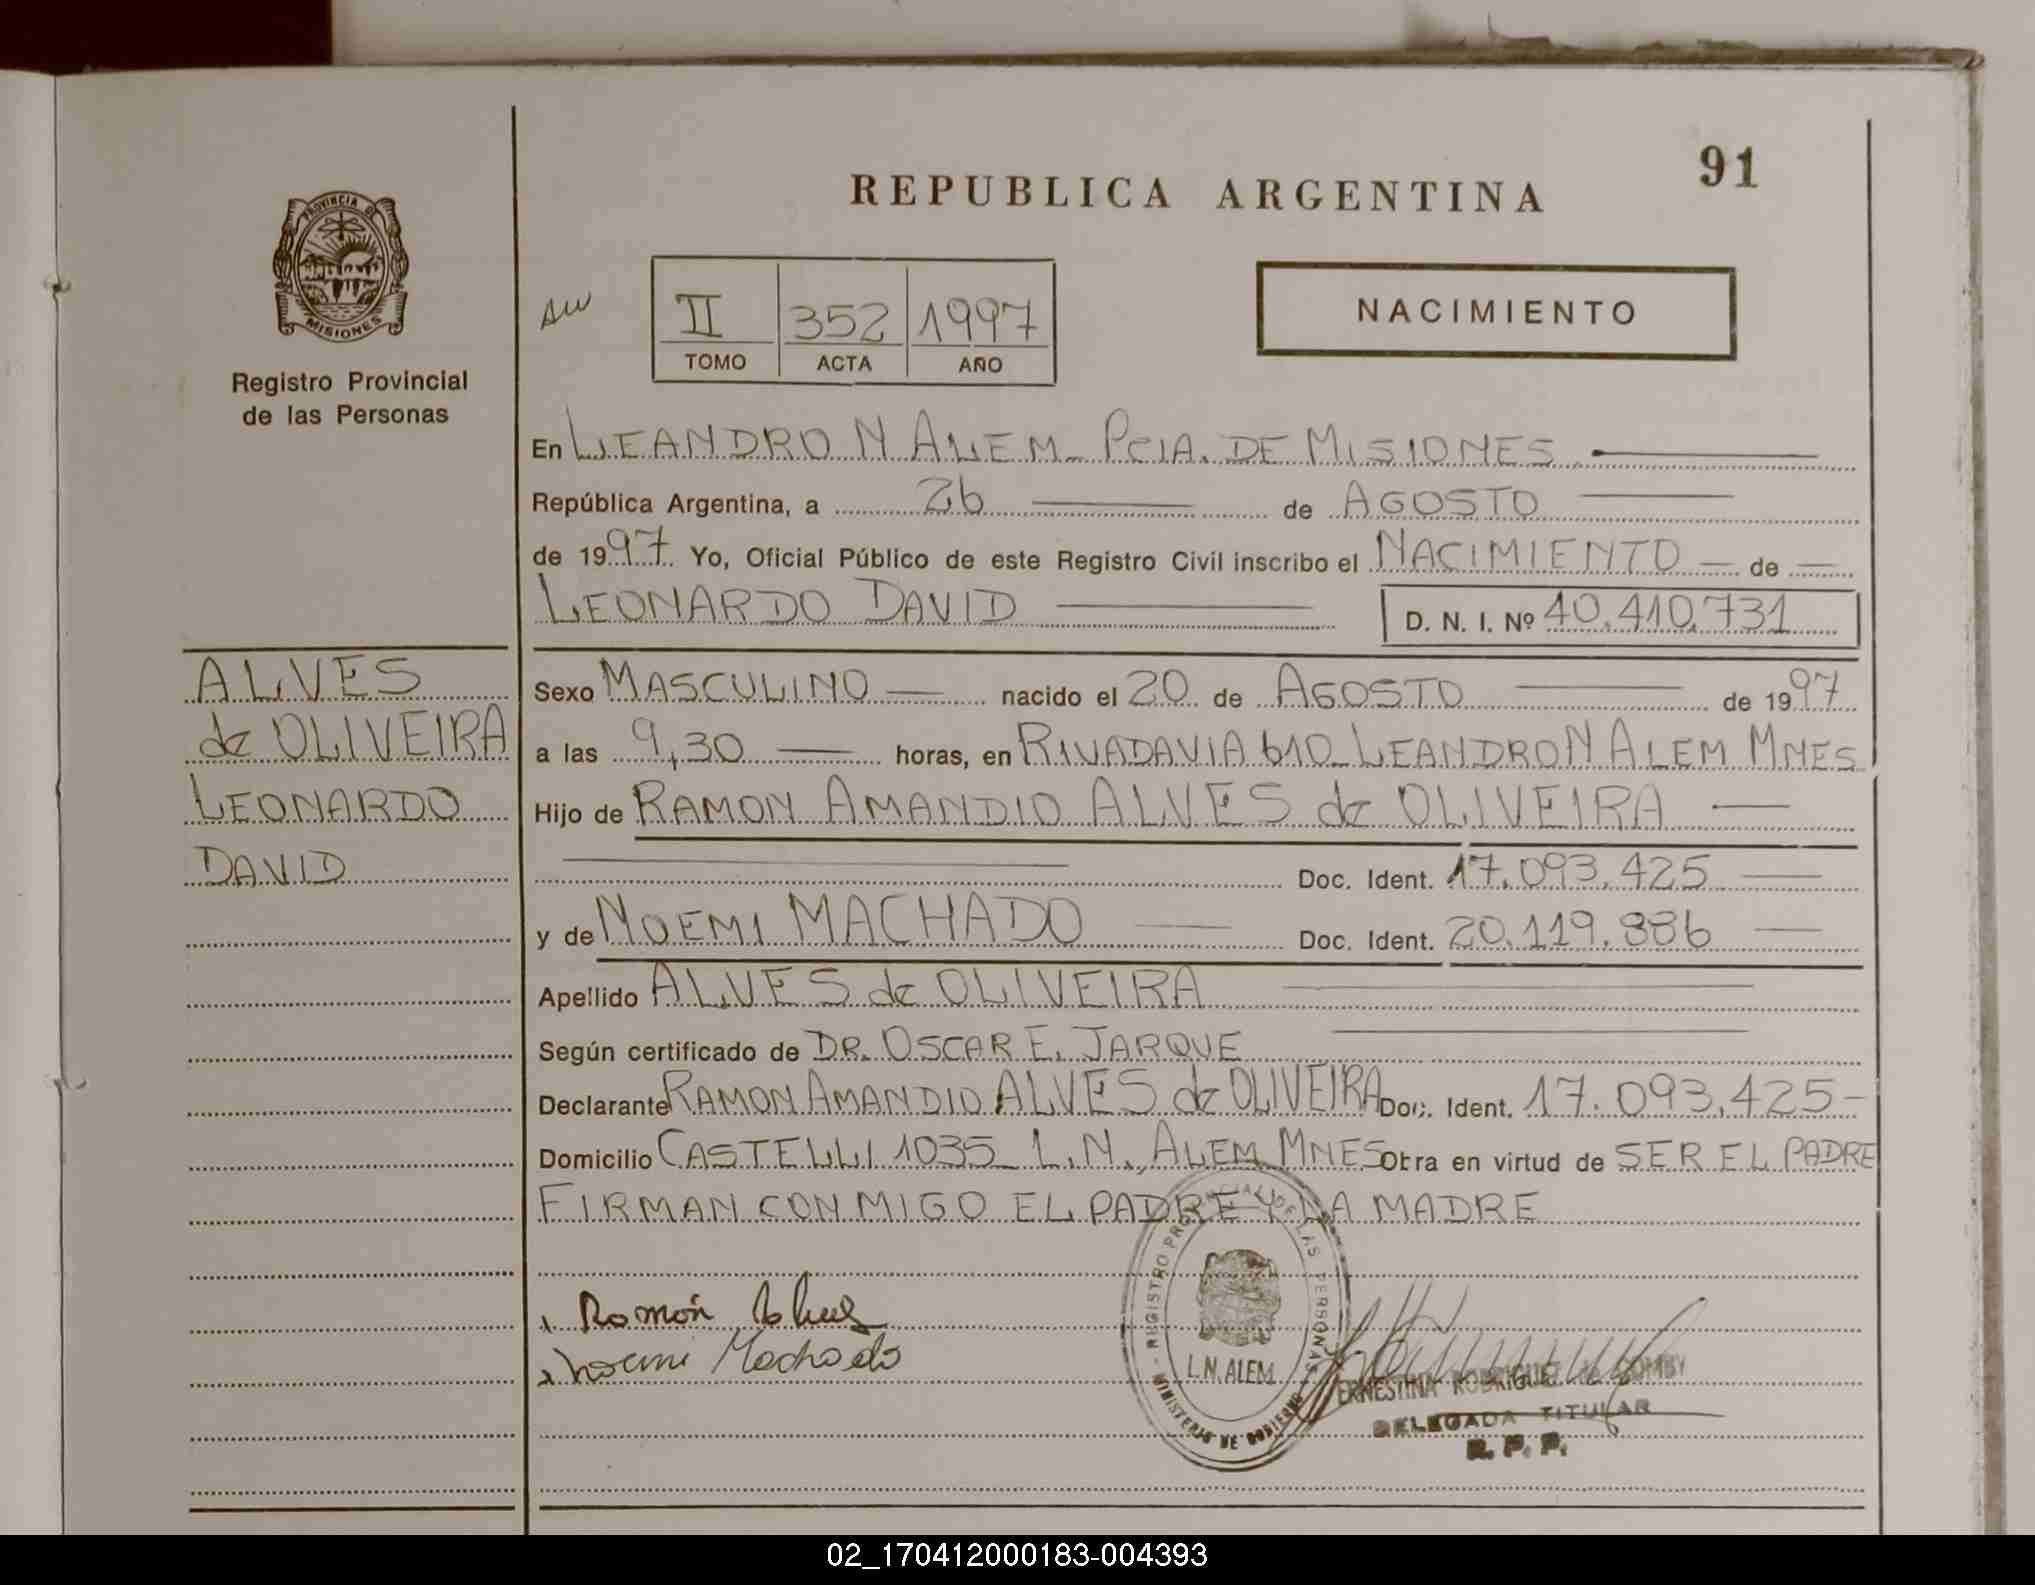 91
REPUBLICA ARGENTINA
PROVINCIA DE
MISIONES
Registro Provincial
de las Personas
II 352 1997
TOMO ACTA AÑO
NACIMIENTO
En LEANDRO N ALEM - PCIA. DE MISIONES
República Argentina, a 26 de AGOSTO
de 1997. Yo, Oficial Público de este Registro Civil inscribo el NACIMIENTO de
LEONARDO DAVID D. N. I. Nº 40.410.731
ALVES
de OLIVEIRA
LEONARDO
DAVID
Sexo MASCULINO nacido el 20 de AGOSTO de 1997
a las 9,30 horas, en RIVADAVIA 610 - LEANDRO N ALEM MNES
Hijo de RAMON AMANDIO ALVES de OLIVEIRA
Doc. Ident. 17.093.425
y de NOEMI MACHADO Doc. Ident. 20.119.886
Apellido ALVES de OLIVEIRA
Según certificado de DR. OSCAR E. JARQUE
Declarante RAMON AMANDIO ALVES de OLIVEIRA Doc. Ident. 17.093.425-
Domicilio CASTELLI 1035 - L.N. ALEM MNES Obra en virtud de SER EL PADRE
FIRMAN CONMIGO EL PADRE Y LA MADRE
Ramón
Noemi Machado
REGISTRO PROVINCIAL DE LAS PERSONAS
L.N. ALEM
MINISTERIO DE GOBIERNO
ERNESTINA RODRIGUEZ
DELEGADA TITULAR
R. P. P.
02_170412000183-004393